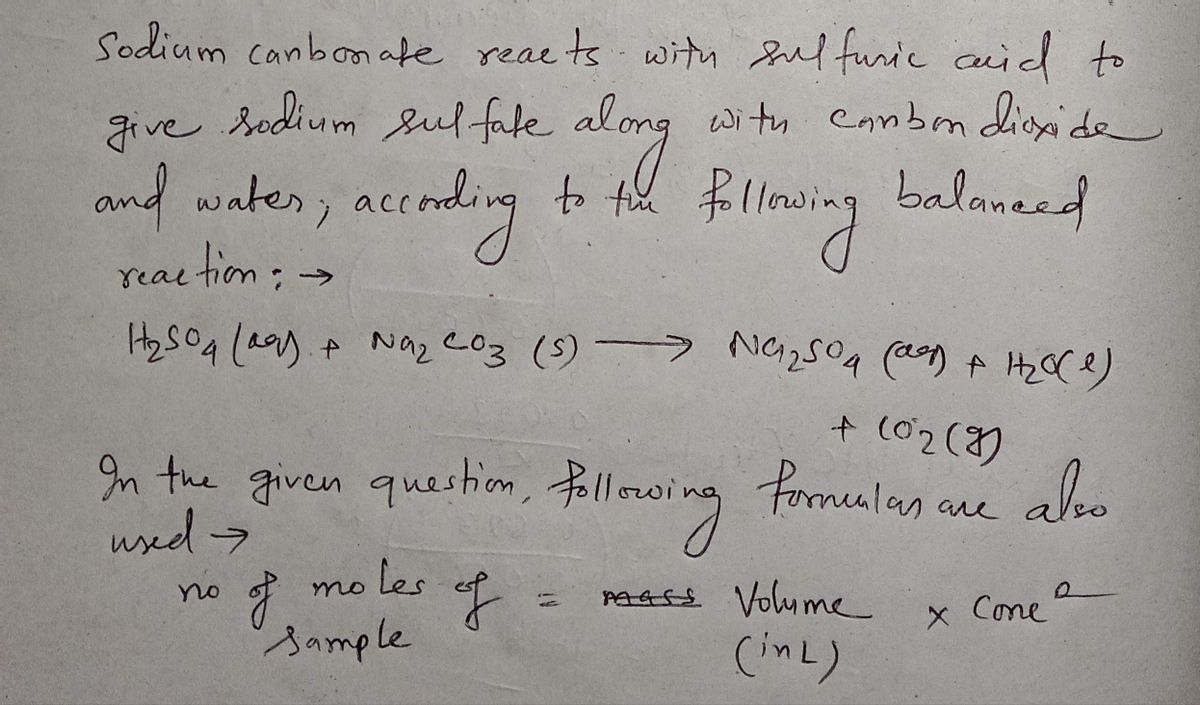 Sodium carbonate reacts with sulfuric acid to
give sodium sulfate along with carbon dioxide
and water, according to the following balanced
reaction : →
H₂SO₄ (aq) + Na₂CO₃ (s) ⟶ Na₂SO₄ (aq) + H₂O(l)
+ CO₂ (g)
In the given question, following formulas are also
used →
no of moles of = mass Volume x Concⁿ
sample (in L)